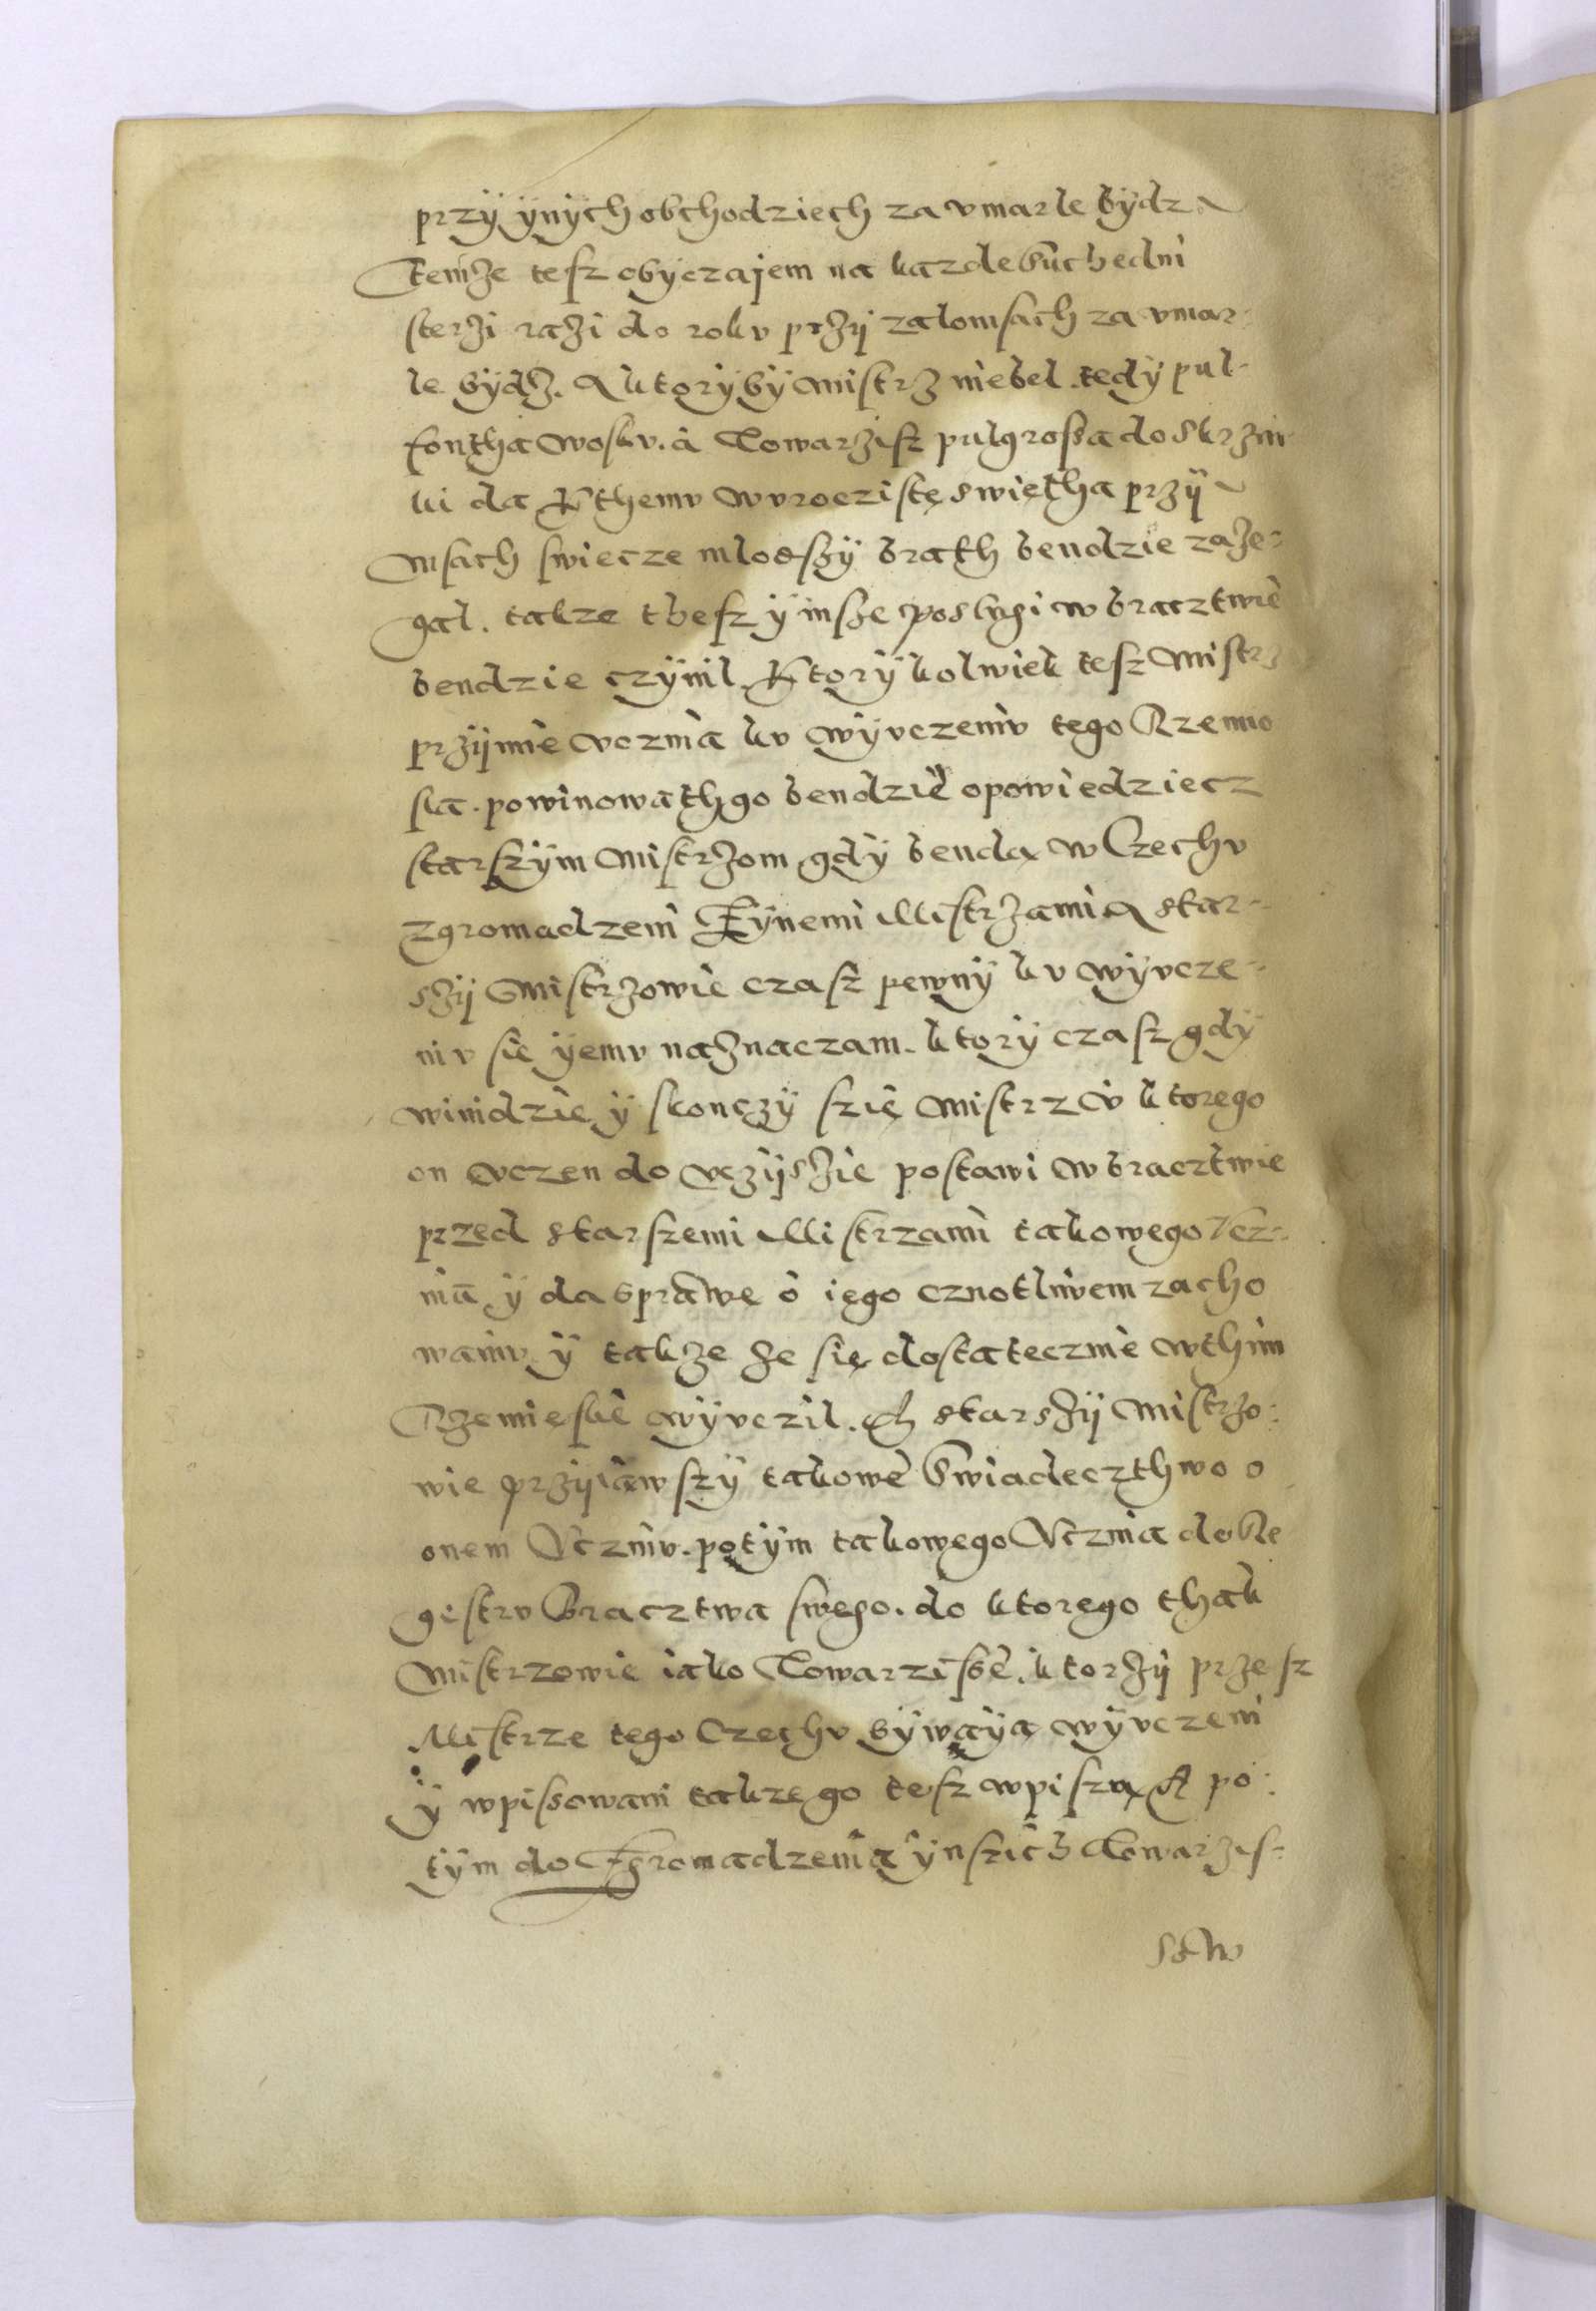 przÿ ÿnÿch obchodziech za vmarle bÿdz
Temze tesz obÿczajem na kazde Suchedni
sterzi razi do rokv przÿ zalomsach za vmar:
le bÿdz. A ktorÿ bÿ Mistrz niebel. tedÿ pul-
fontha Woskv. à Towarzisz pulgrossa do Skrzin
ki da Kthemv Wvroczistę swiętha przÿ
Msach swiecze mlodszÿ brath bendzie zaze:
gal. takze thesz ÿ insze poslugi w bracztwiè
bendzie czÿnil. Ktorÿkolwiek tesz Mistrz
przÿmie Vcznia kv Wÿvczeniv tego Rzemio
sla. powinowath go bendziè opowiedziecz
starszÿm Mistrzom gdÿ bendą W Czechv
zgromadzeni Zÿnemi Mistrzami A star-
szÿ Mistrzowie czasz pewnÿ kv wÿvcze-
niv się ÿemv naznaczam. ktorÿ czasz gdÿ
winidzie ÿ skonczÿ szię Mistrz v ktorego
on Vczen do Vczÿszie postawi W bracztwie
przed starszemi Mistrzami takowego Vcz:
nia ÿ da sprawę ò iego cznotliwem zacho
waniv ÿ takze ze się dostatecznie Wthim
Rzemieslè Wÿvczil. A starszÿ Mistrzo:
wie przÿiawszÿ takowè Swiadeczthwo o
onem Vczniv. potÿm takowego Vcznia do Re
gestrv Bracztwa swego. do ktorego thak
Mistrzowie iako Towarzissè. ktorzÿ przesz
Mistrze tego Czechv bÿwaÿą wÿvczeni
ÿ wpissowani takze go tesz wpiszą A po:
tÿm do Zgromadzenia ÿnszich Towarzis:
stw